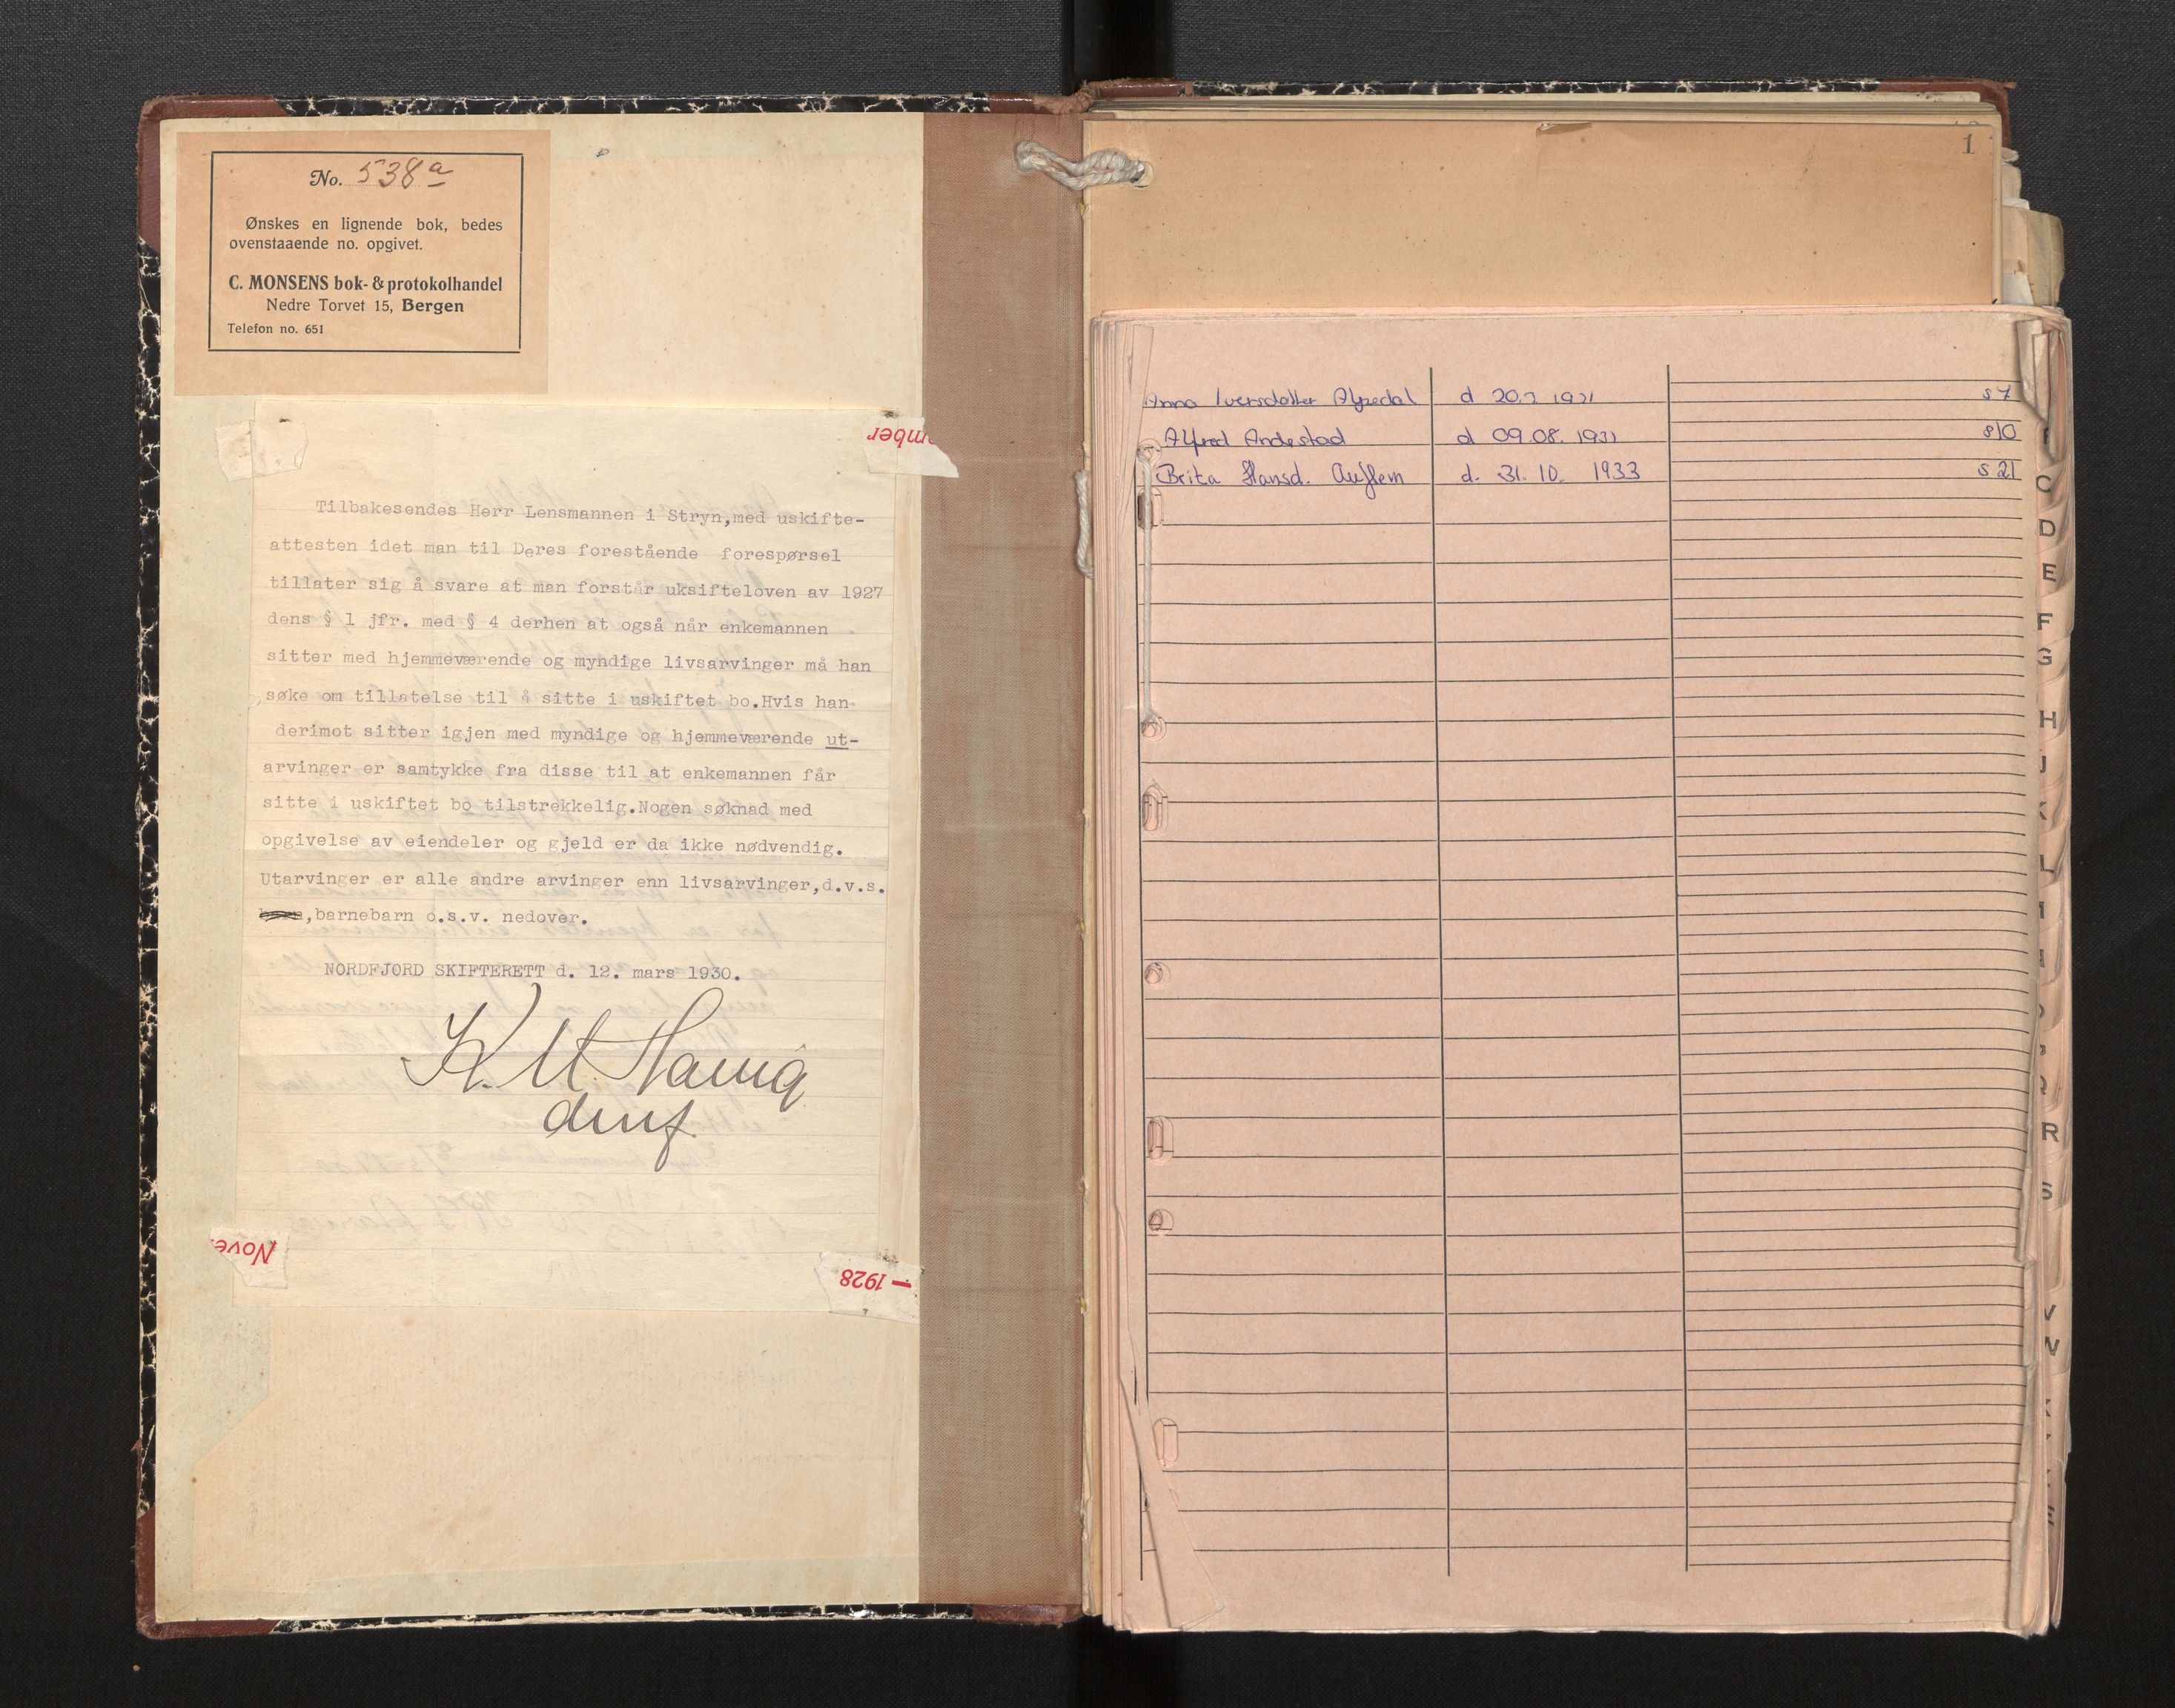 No. 538 a
Ønskes en lignende bok, bedes
ovenstaaende no. opgivet.
C. MONSENS bok- & protokolhandel
Nedre Torvet 15, Bergen
Telefon no. 651
ember
Tilbakesendes Herr Lensmannen i Stryn,med uskifte-
attesten idet man til Deres forestående forespørsel
tillater sig å svare at man forstår uksifteloven av 1927
dens § 1 jfr. med § 4 derhen at også når enkemannen
sitter med hjemmeværende og myndige livsarvinger må han
søke om tillatelse til å sitte i uskiftet bo.Hvis han
derimot sitter igjen med myndige og hjemmeværende ut-
arvinger er samtykke fra disse til at enkemannen får
sitte i uskiftet bo tilstrekkelig.Nogen søknad med
opgivelse av eiendeler og gjeld er da ikke nødvendig.
Utarvinger er alle andre arvinger enn livsarvinger,d.v.s.
barn,barnebarn o.s.v. nedover.
NORDFJORD SKIFTERETT d. 12. mars 1930.
Nove
— 1928
1
Anna Iversdatter s 7
Alfred Andestad d 09.08. 1931 s 10
Brita Hansd. Auflem d. 31. 10. 1933 s 21
C
D
E
F
G
H
J
K
L
R
S
V
W